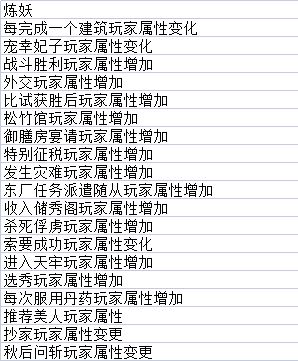 炼妖
每完成一个建筑玩家属性变化
宠幸妃子玩家属性变化
战斗胜利玩家属性增加
外交玩家属性增加
比试获胜后玩家属性增加
松竹馆玩家属性增加
御膳房宴请玩家属性增加
特别征税玩家属性增加
发生灾难玩家属性增加
东厂任务派遣随从玩家属性增加
收入储秀阁玩家属性增加
杀死俘虏玩家属性增加
索要成功玩家属性变化
进入天牢玩家属性增加
选秀玩家属性增加
每次服用丹药玩家属性增加
推荐美人玩家属性
抄家玩家属性变更
秋后问斩玩家属性变更